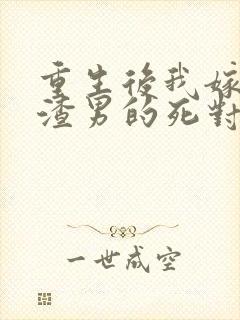 重生後我嫁
渣男的死對
一世成空